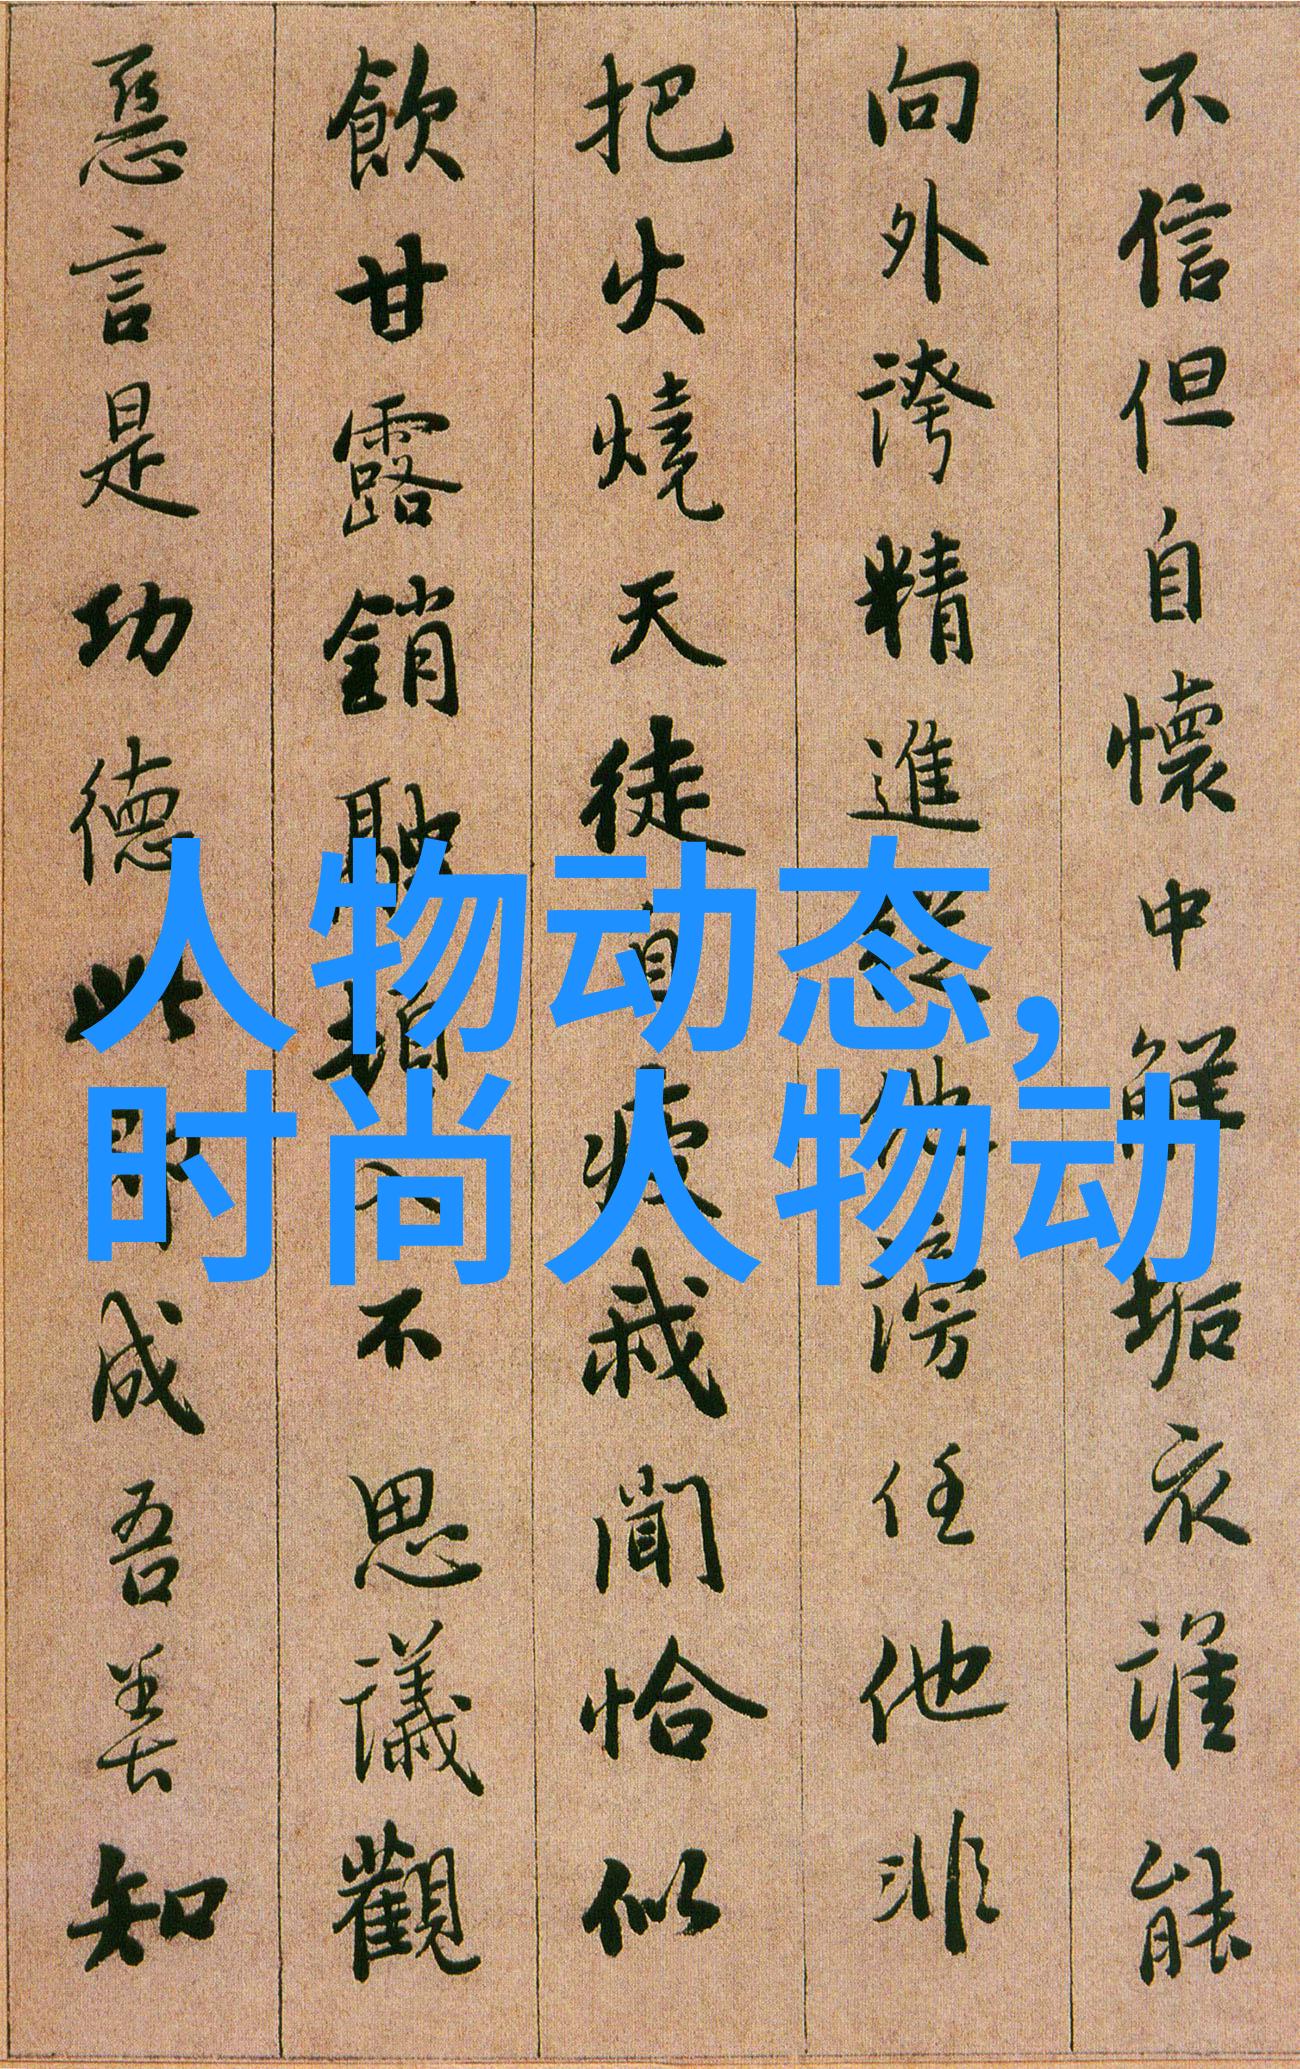 不信但自懷中解垢衣誰能
向外誇精進從他謗任他非
把火燒天徒自疲我聞恰似
飲甘露銷融頓入不思議觀
惡言是功德此即成吾善知
人物动态,
时尚人物动